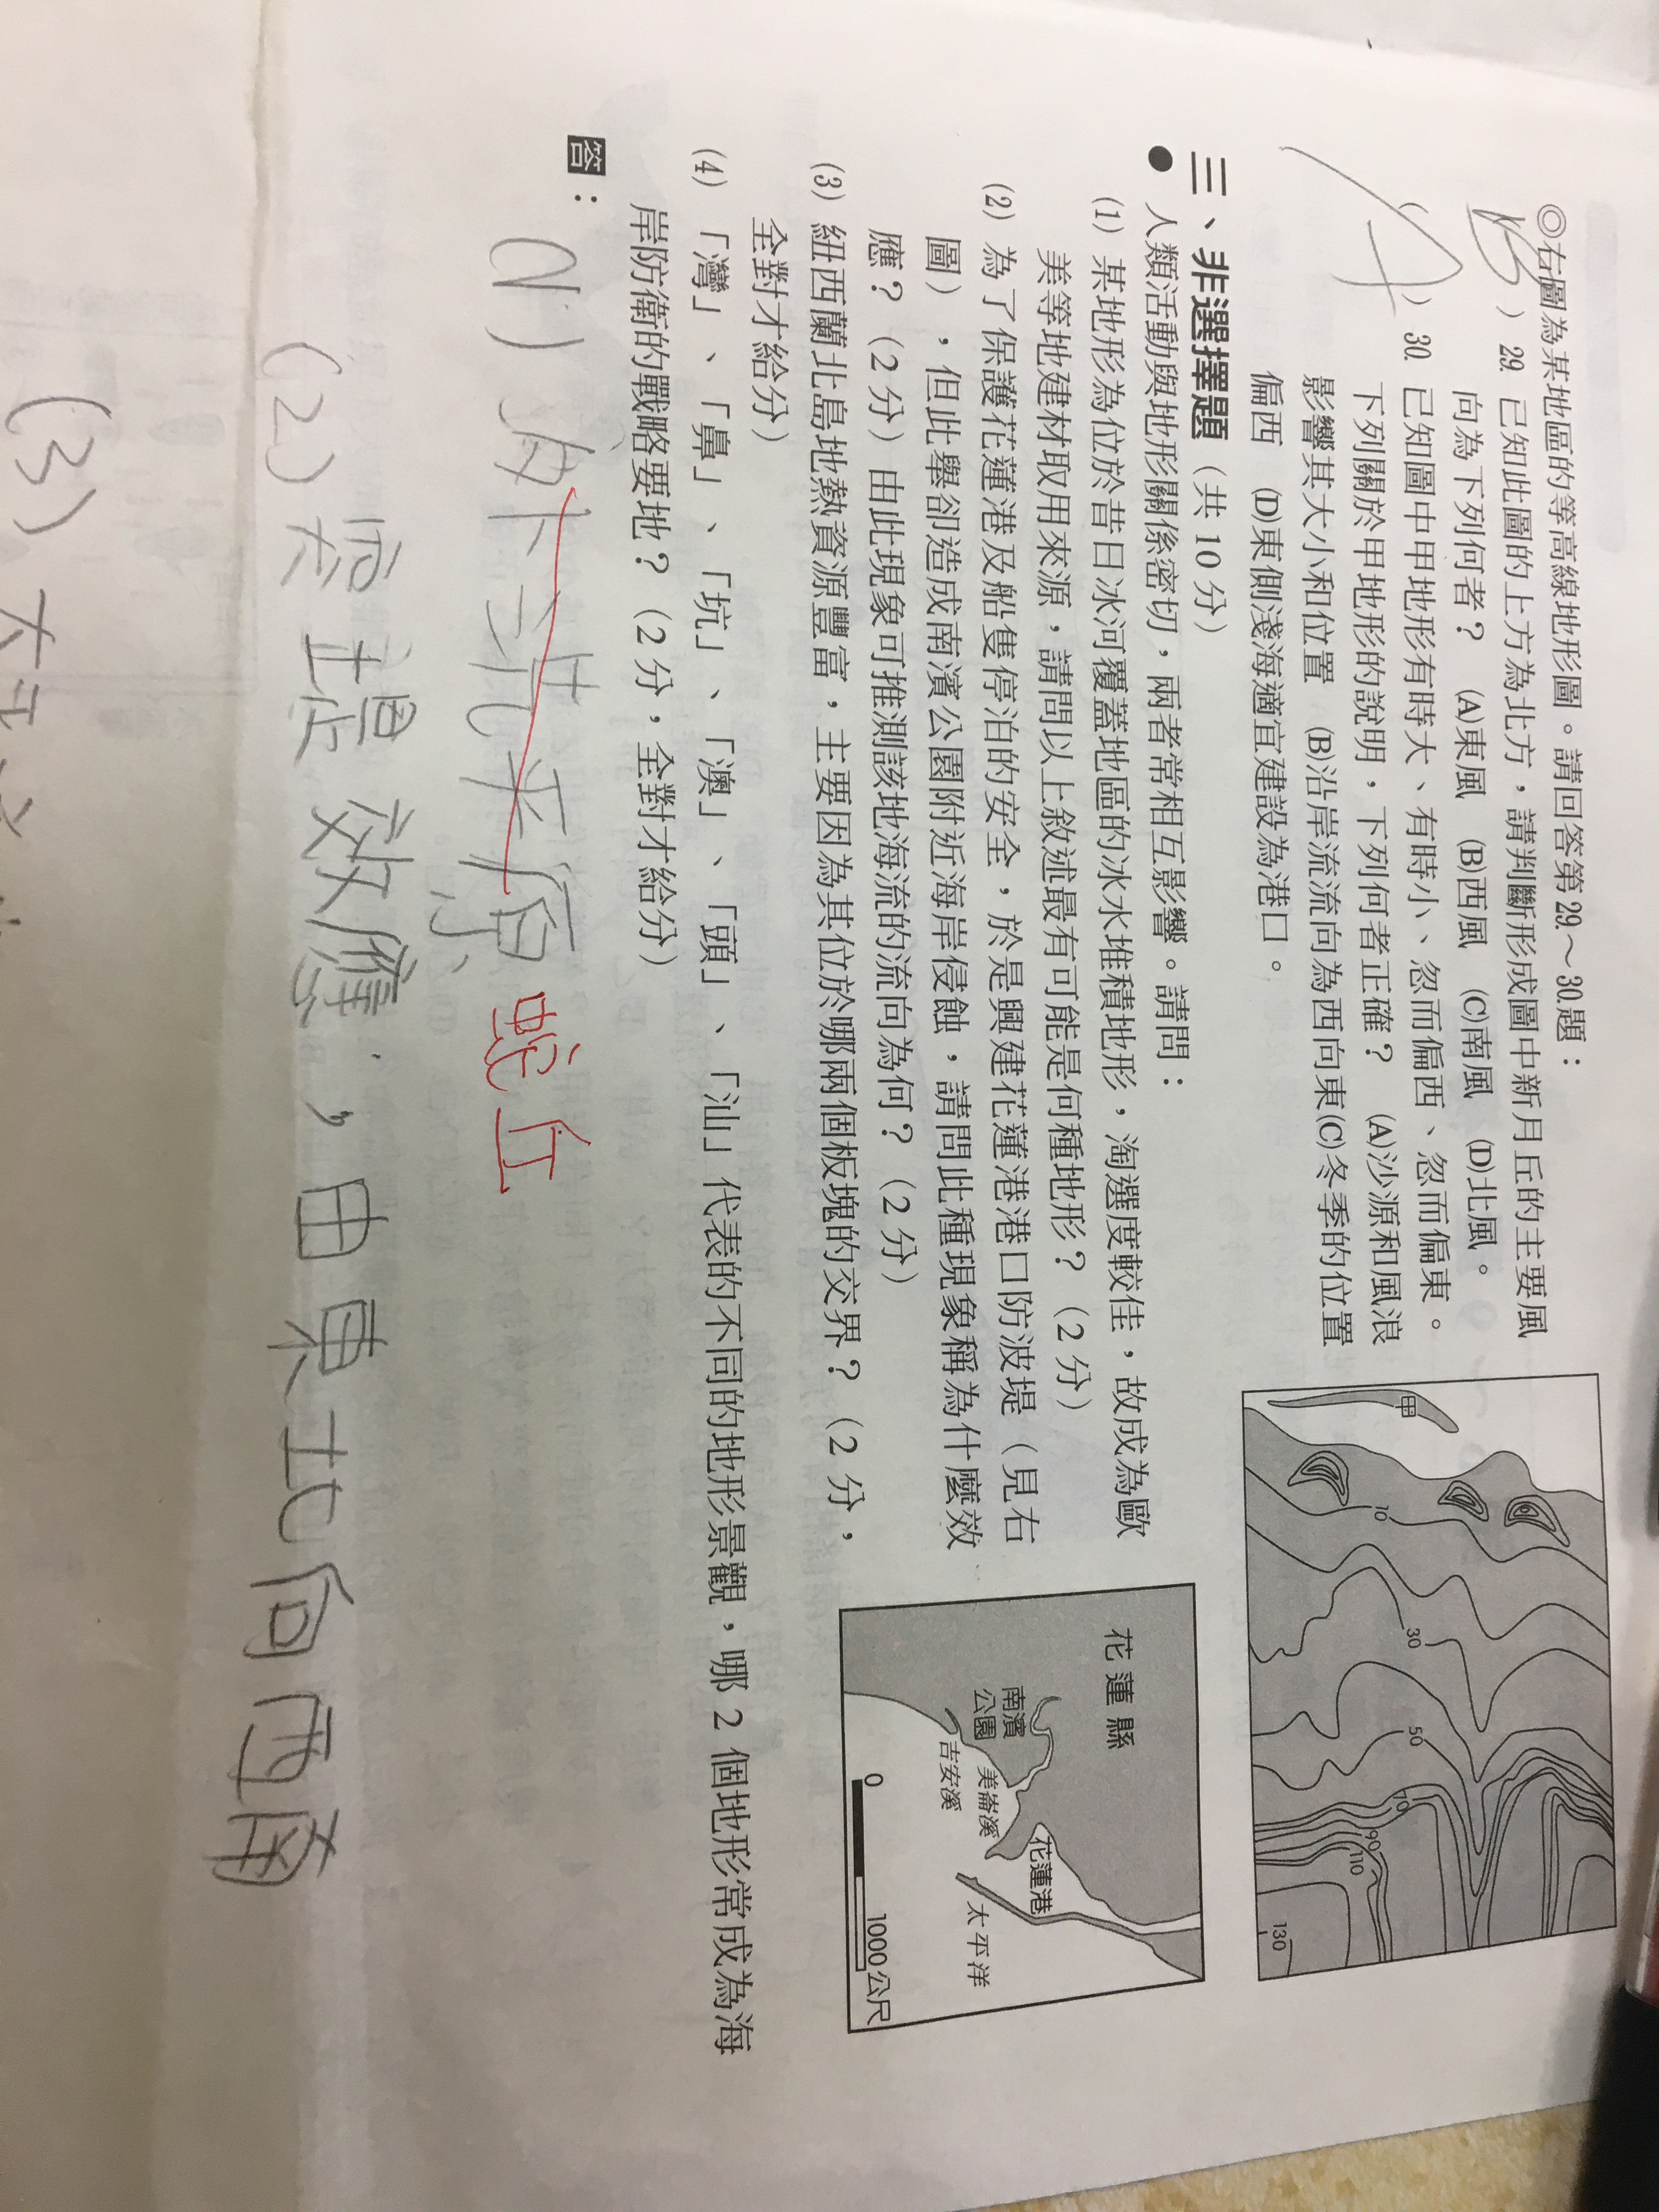 ◎右圖為某地區的等高線地形圖。請回答第29.~30.題：
(B) 29. 已知此圖的上方為北方，請判斷形成圖中新月丘的主要風
向為下列何者？ (A)東風 (B)西風 (C)南風 (D)北風。
(A) 30. 已知圖中甲地形有時大、有時小、忽而偏西、忽而偏東。
下列關於甲地形的說明，下列何者正確？ (A)沙源和風浪
影響其大小和位置 (B)沿岸流流向為西向東(C)冬季的位置
偏西 (D)東側淺海適宜建設為港口。
甲
10
30
50
70
90
110
130
三、非選擇題（共 10 分）
● 人類活動與地形關係密切，兩者常相互影響。請問：
(1) 某地形為位於昔日冰河覆蓋地區的冰水堆積地形，淘選度較佳，故成為歐
美等地建材取用來源，請問以上敘述最有可能是何種地形？（2 分）
(2) 為了保護花蓮港及船隻停泊的安全，於是興建花蓮港港口防波堤（見右
圖），但此舉卻造成南濱公園附近海岸侵蝕，請問此種現象稱為什麼效
應？（2 分）由此現象可推測該地海流的流向為何？（2 分）
(3) 紐西蘭北島地熱資源豐富，主要因為其位於哪兩個板塊的交界？（2 分，
全對才給分）
(4) 「灣」、「鼻」、「坑」、「澳」、「頭」、「汕」代表的不同的地形景觀，哪 2 個地形常成為海
岸防衛的戰略要地？（2 分，全對才給分）
花蓮縣
南濱
公園
美崙溪
吉安溪
花蓮港
太平洋
0 1000公尺
答：
(1) 外洗平原 蛇丘
(2) 突堤效應，由東北向西南
(3) 太平洋